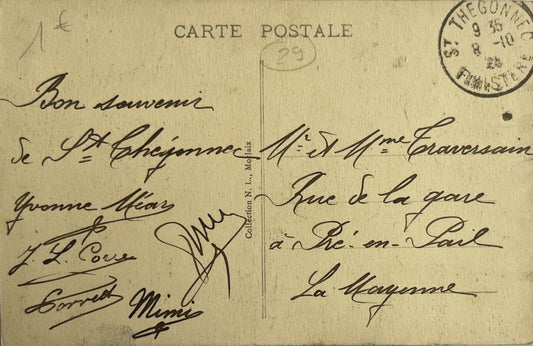 1€
CARTE POSTALE
29
ST THEGONNEC
9 35
8 -10
25
FINISTERE
Bon souvenir
de St Thégonnec
Yvonne Méar
J. L. Corre
Mimi
Collection N. L., Morlaix
Mr et Mme Traversain
Rue de la gare
à Pré-en-Pail
La Mayenne